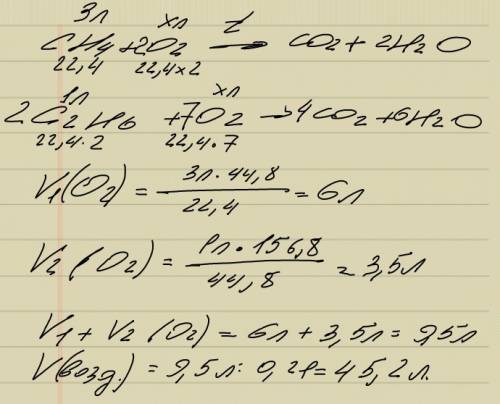 3л xл t
CH4+2O2 → CO2+2H2O
22,4 22,4×2
1л xл
2C2H6 +7O2 →4CO2+6H2O
22,4·2 22,4·7
V1(O2) = 3л·44,8 / 22,4 = 6л
V2(O2) = 1л·156,8 / 44,8 = 3,5л
V1 + V2 (O2) = 6л + 3,5л = 9,5л
V(возд.) = 9,5л : 0,21 = 45,2л.